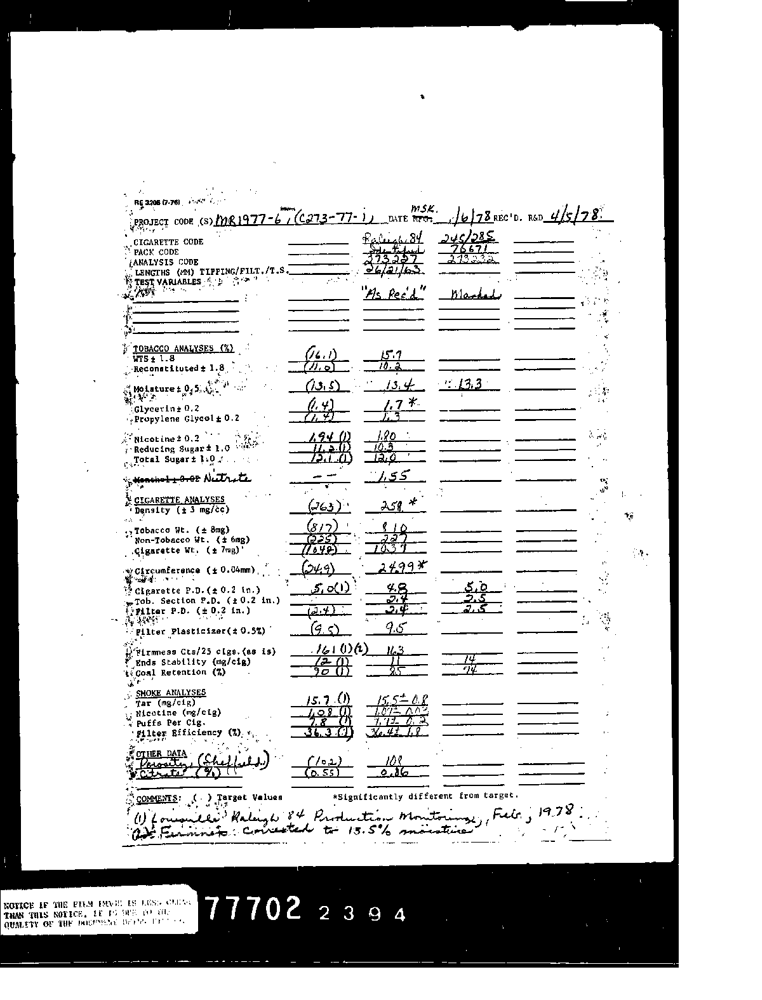 RE 3208 (7-76)
PROJECT CODE (S) MR1977-6, (C273-77-1) DATE MSK. /6/78 REC'D. R&D 4/5/78.
CIGARETTE CODE Raleigh 84 245/285
PACK CODE 76671
ANALYSIS CODE 273227 273232
LENGTHS (MM) TIPPING/FILT./T.S. 26/21/63
TEST VARIABLES
"As Rec'd" Masked
TOBACCO ANALYSES (%)
WTS ± 1.8 (16.1) 15.7
Reconstituted ± 1.8 (11.0) 10.2
Moisture ± 0.5 (13.5) 13.4 13.3
Glycerin ± 0.2 (1.4) 1.7 *
Propylene Glycol ± 0.2 (1.4) 1.3
Nicotine ± 0.2 1.94 (1) 1.80
Reducing Sugar ± 1.0 11.2 (1) 10.3
Total Sugar ± 1.0 12.1 (1) 12.0
Menthol ± 0.02 Nitrate -- 1.55
CIGARETTE ANALYSES
Density (± 3 mg/cc) (263) 258 *
Tobacco Wt. (± 8mg) (817) 810
Non-Tobacco Wt. (± 6mg) (225) 227
Cigarette Wt. (± 7mg) (1042) 1037
Circumference (± 0.04mm) (24.9) 24.99*
Cigarette P.D. (± 0.2 in.) 5.0(1) 4.8 5.0
Tob. Section P.D. (± 0.2 in.) 2.4 2.5
Filter P.D. (± 0.2 in.) (2.4) 2.4 2.5
Filter Plasticizer (± 0.5%) (9.5) 9.5
Firmness Cts/25 cigs. (as is) .161 (1)(2) 163
Ends Stability (mg/cig) 12 (1) 11 14
Coal Retention (%) 90 (1) 85 94
SMOKE ANALYSES
Tar (mg/cig) 15.7 (1) 15.5 ± 0.8
Nicotine (mg/cig) 1.08 (1) 1.07 ± 0.03
Puffs Per Cig. 7.8 (1) 7.7 ± 0.2
Filter Efficiency (%) 36.3 (1) 36.4 ± 1.8
OTHER DATA
Porosity (Sheffield) (102) 108
Citrate (%) (0.55) 0.86
COMMENTS: ( ) Target Values *Significantly different from target.
(1) Louisville Raleigh 84 Production Monitoring, Feb., 1978.
Firmness: Corrected to 13.5% moisture
NOTICE IF THE FILM IMAGE IS LESS CLEAR
THAN THIS NOTICE, IT IS DUE TO THE
QUALITY OF THE DOCUMENT BEING
77702 2394